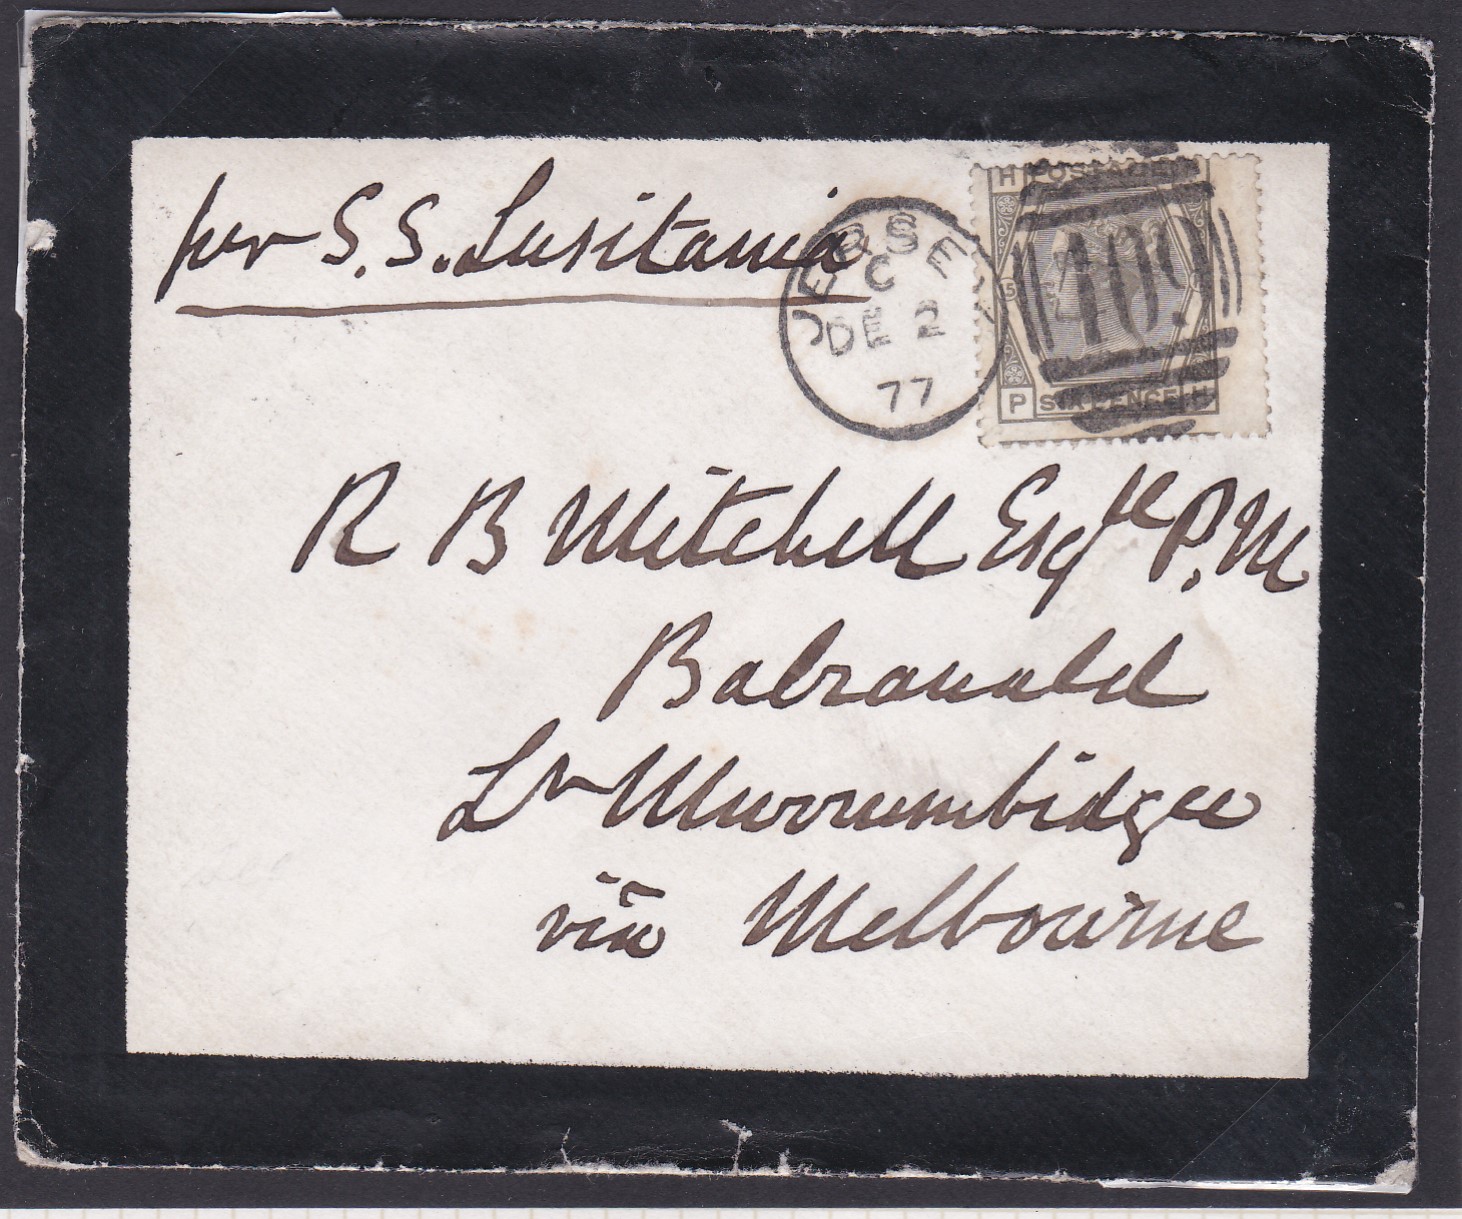 per S.S. Lusitania
JERSEY
C
DE 2
77
H POSTAGE
409
15
P SIX PENCE H
R B Mitchell Esqre P.M
Balranald
Lr Murrumbidgee
viâ Melbourne